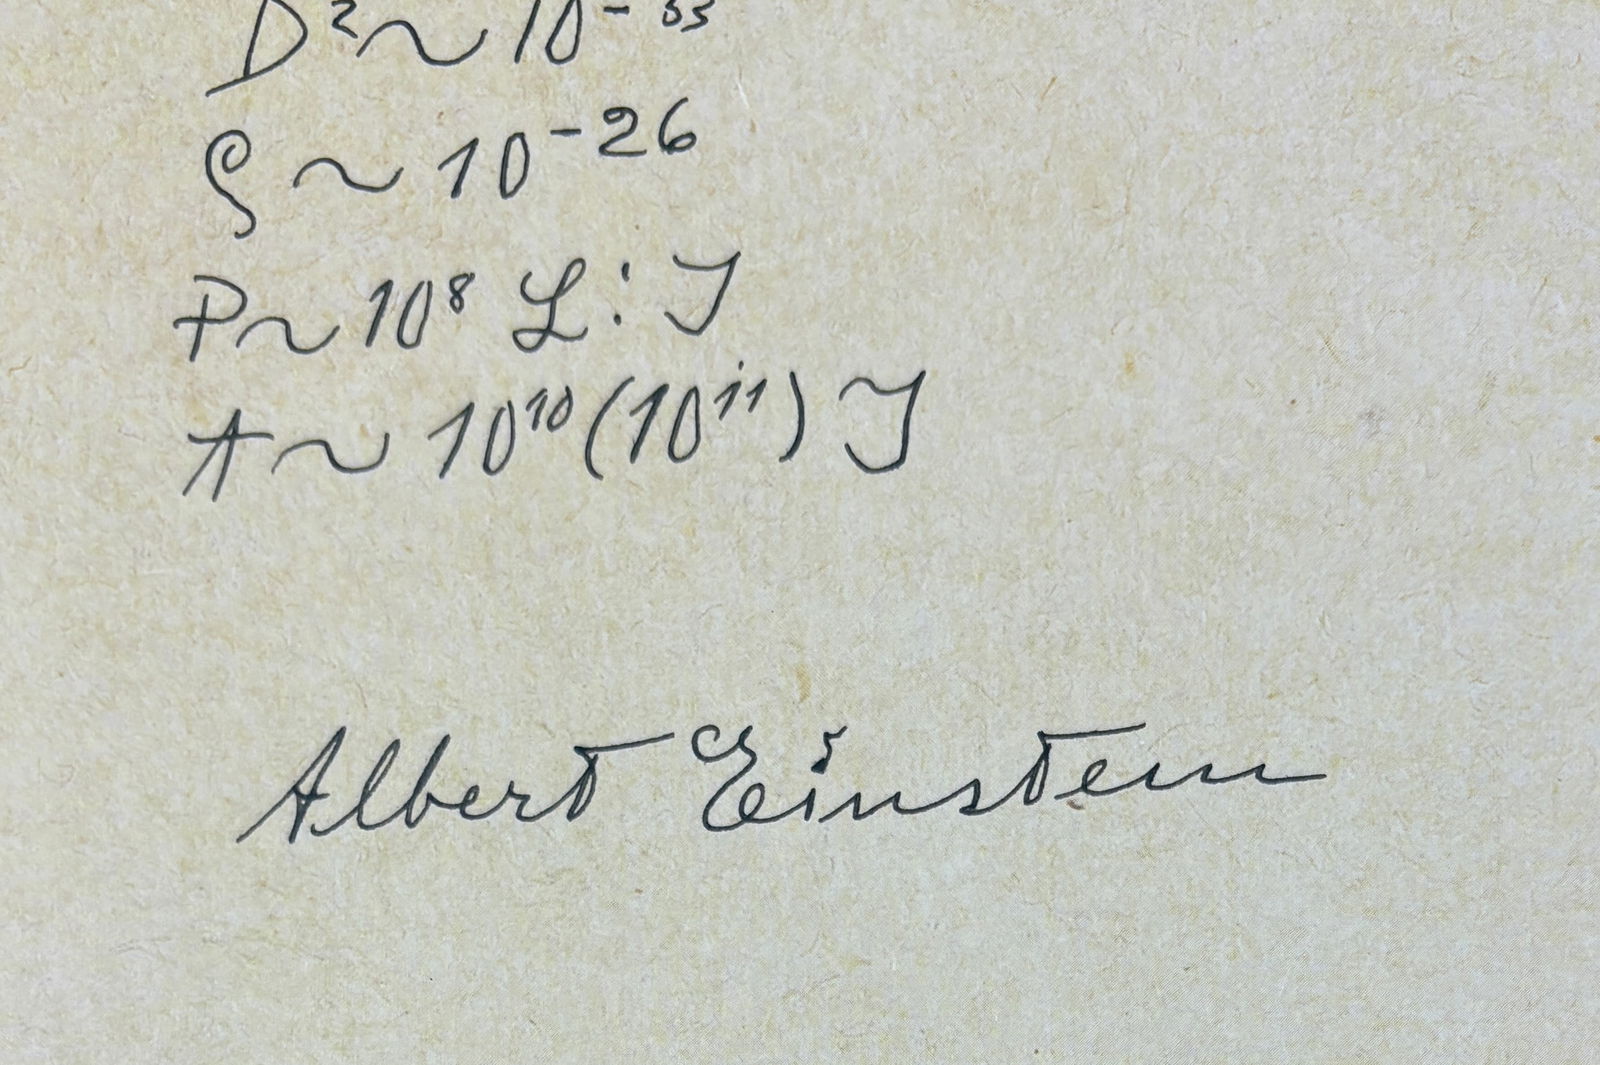 D² ~ 10⁻⁵³
ρ ~ 10⁻²⁶
P ~ 10⁸ L : J
A ~ 10¹⁰ (10¹¹) J
Albert Einstein